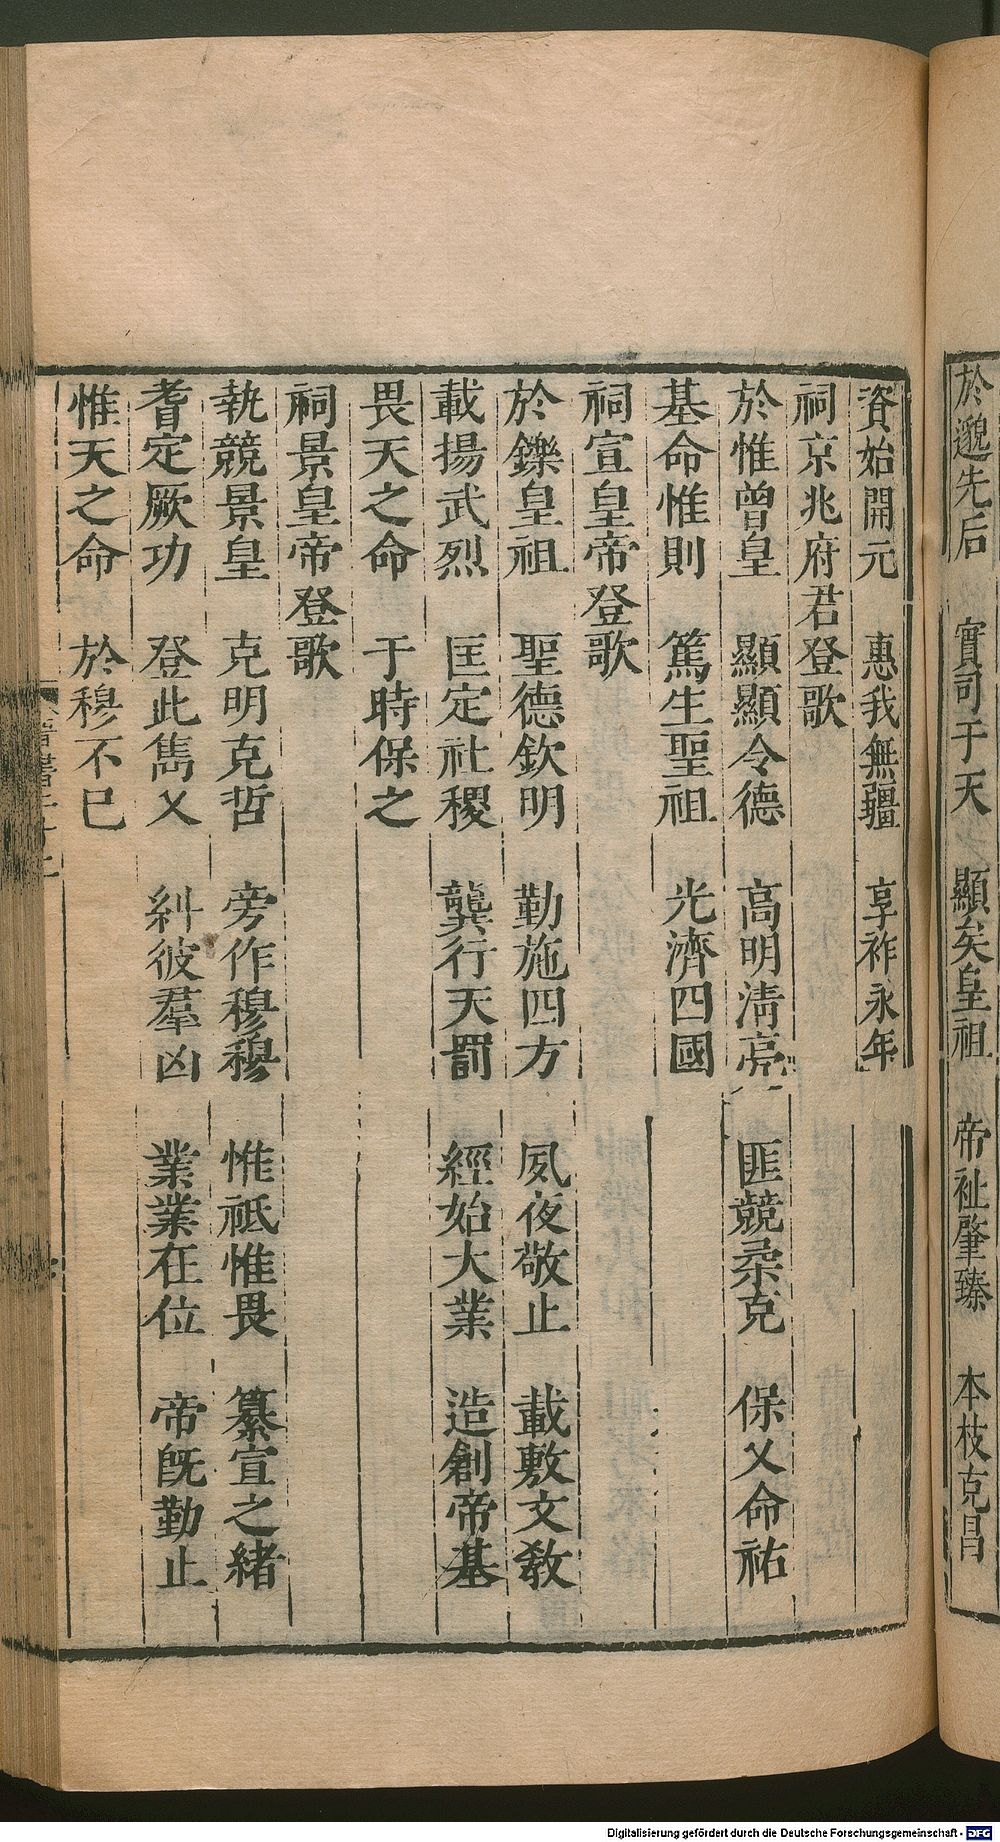 於邈先后　實司于天　顯矣皇祖　帝祉肇臻　本枝克昌
資始開元　惠我無疆　享祚永年
祠京兆府君登歌
於惟曾皇　顯顯令德　高明淸亮　匪競柔克　保乂命祐
基命惟則　篤生聖祖　光濟四國
祠宣皇帝登歌
於鑠皇祖　聖德欽明　勤施四方　夙夜敬止　載敷文敎
載揚武烈　匡定社稷　龔行天罰　經始大業　造創帝基
畏天之命　于時保之
祠景皇帝登歌
執競景皇　克明克哲　旁作穆穆　惟祗惟畏　纂宣之緒
耆定厥功　登此雋乂　糾彼羣凶　業業在位　帝旣勤止
惟天之命　於穆不已
Digitalisierung gefördert durch die Deutsche Forschungsgemeinschaft - DFG